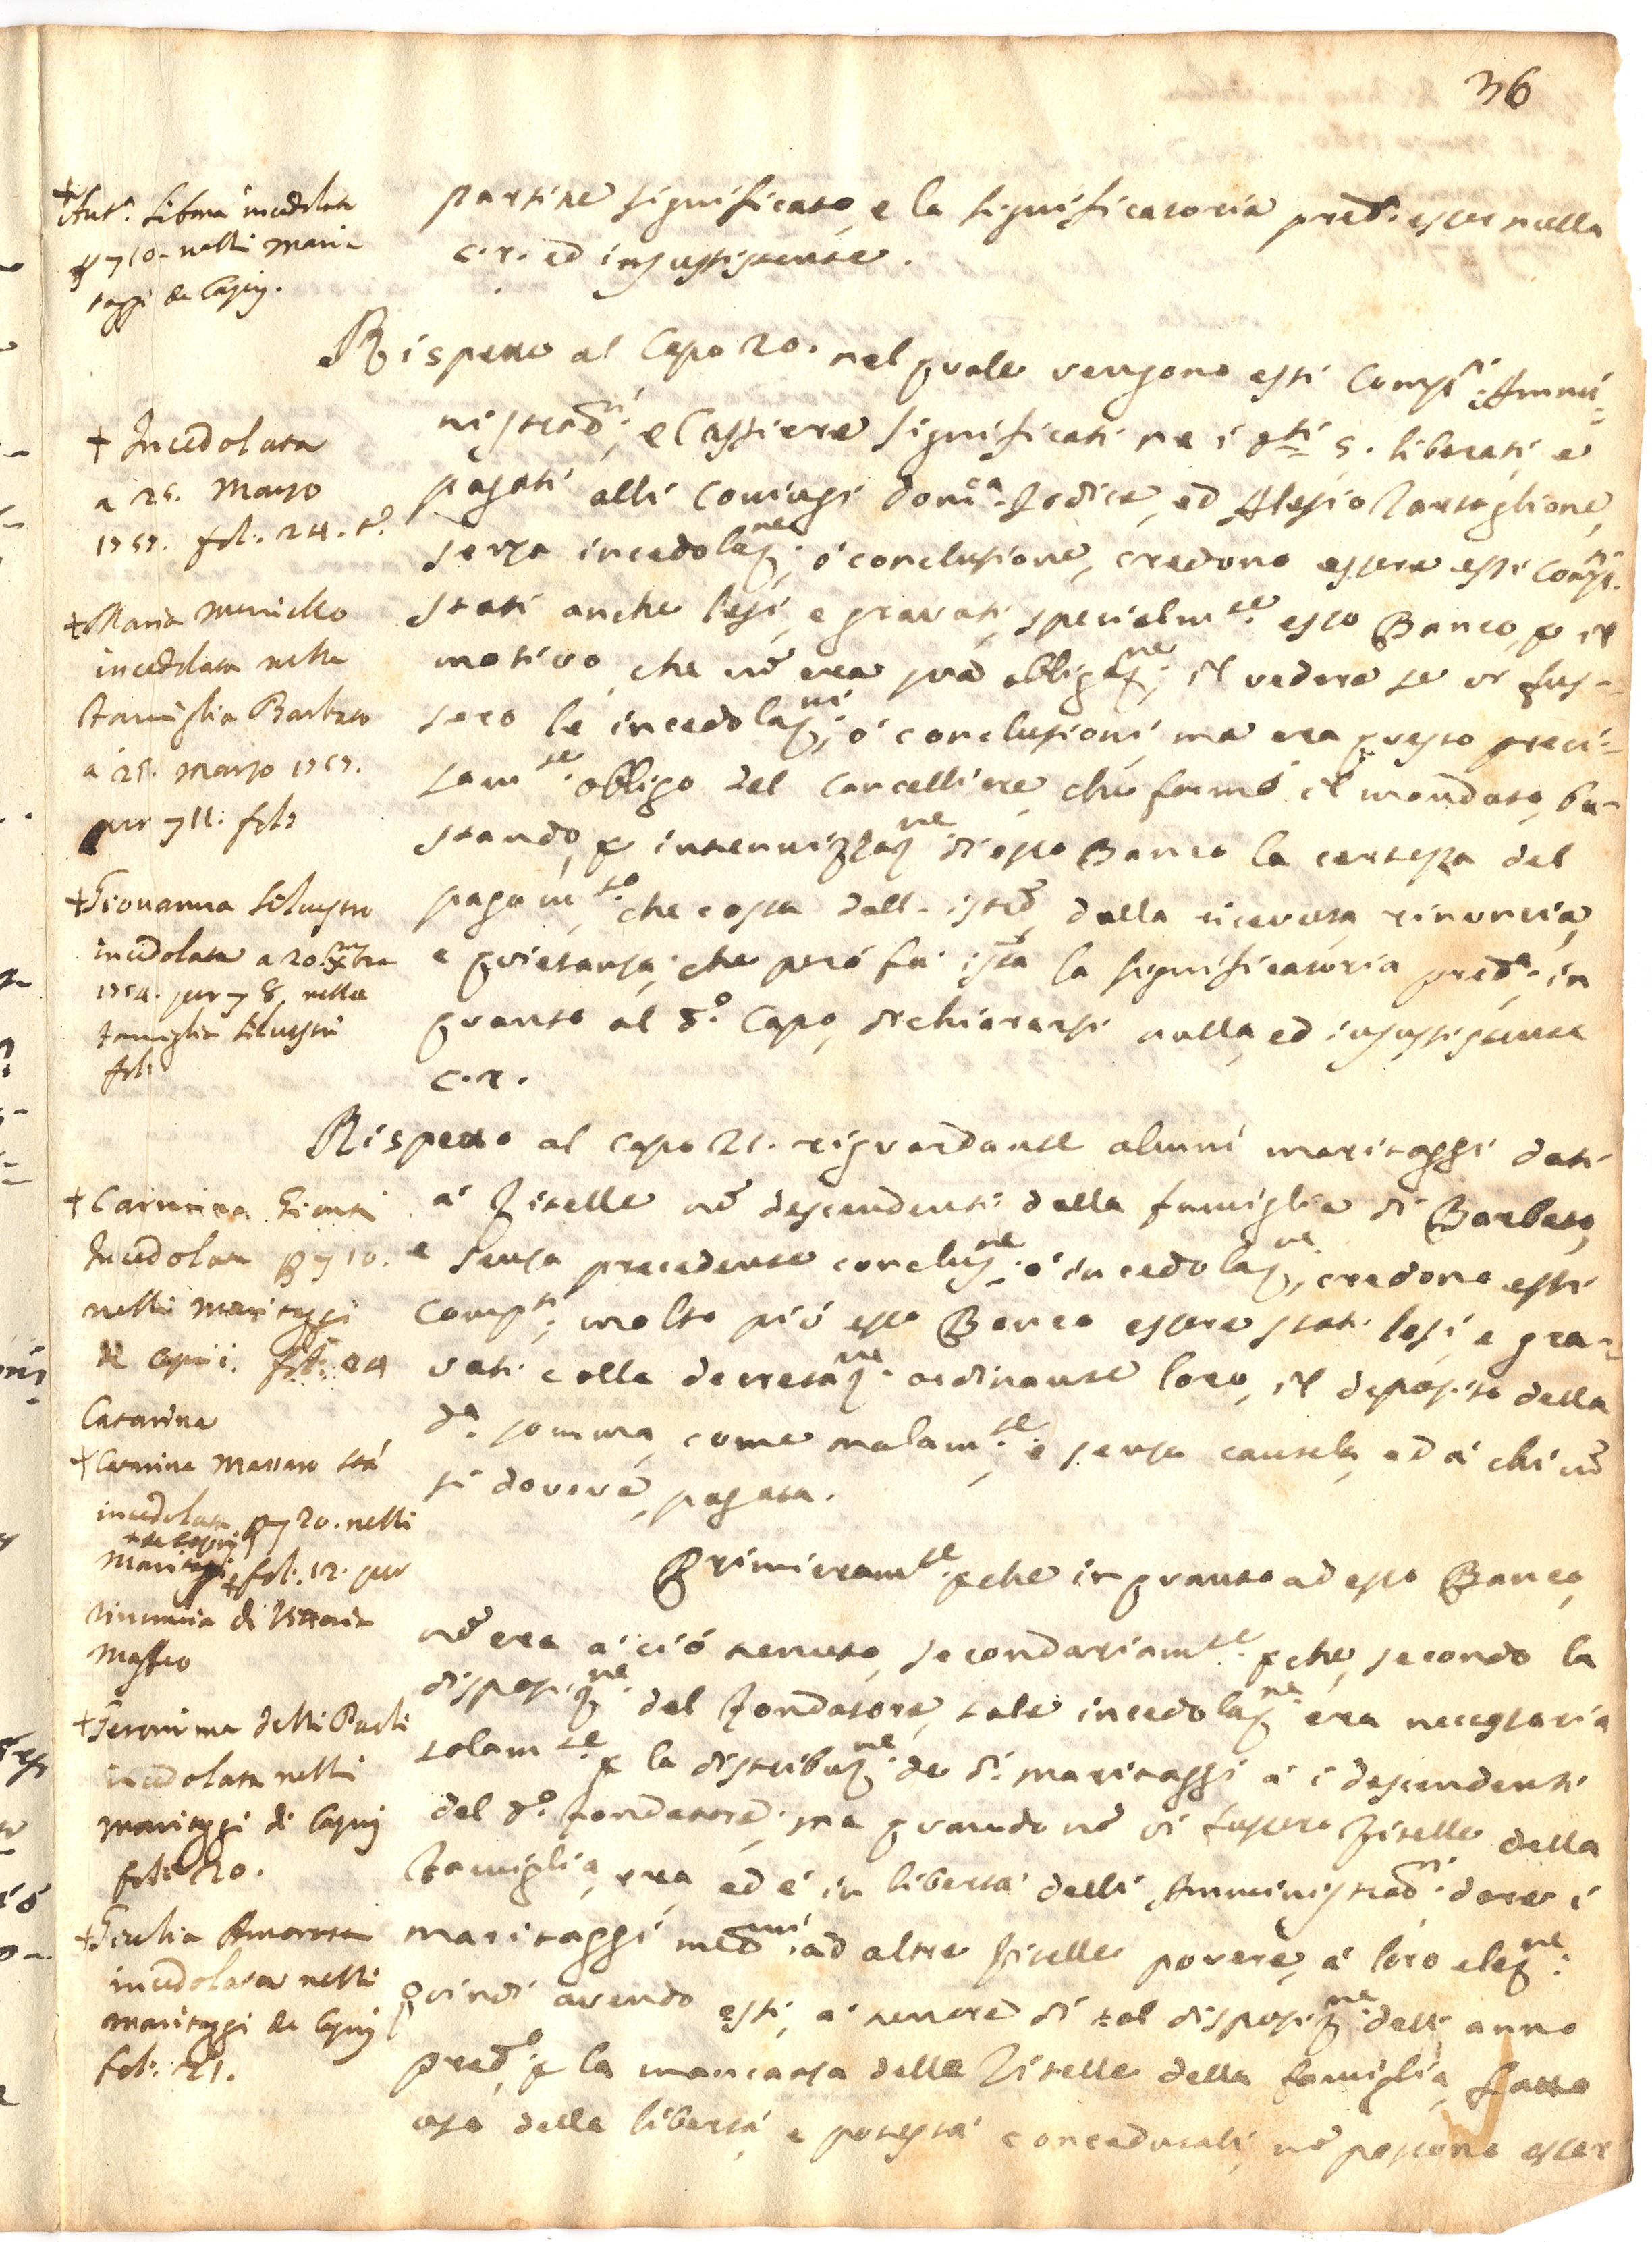 36
partite significate, e la significatoria pred.ª esser nulla
c. r. ed insussistente.
Rispetto al Capo 20. nel quale vengono essi Comp.ti Ammi=
nistrad.ri, e Cassiere significati ne i d.ti 5. liberati, e
pagati alli Coniugi Dom.ca Jodice, ed Alesio Tartaglione,
senza incedolaz.ne, ó conclusione, credono essere essi Comp.ti
stati anche lesi, e gravati, specialm.te esso Banco, p il
motivo, che nō era sua obligaz.ne, il vedere se vi fus=
sero le incedolaz.ni, ó conclusioni, ma era questo preci=
sam.te obligo del Cancelliere, che formó il mandato, ba=
stando, p intennizzaz.ne di esso Banco la certezza del
pagam.to, che costa dall' istō, dalla ricevuta, rinuncia,
e quietanza; che però fá istā la significatoria pred.ª, in
quanto al d.º Capo, dichiararsi nulla, ed insussistente
c. r.
Rispetto al capo 21. riguardante alcuni maritaggi dati
á Zitelle nō descendenti della famiglia di Barbato,
e senza precedente conclus.ne, ó incedolaz.ne, credono essi
Comp.ti, molto più esso Banco essere stati lesi, e gra=
vati colla decretaz.ne ordinante loro, il deposito della
d.ª somma, come malam.te, e senza cautela, ed á chi nō
si doveva, pagata.
Primieram.te pche in quanto ad esso Banco,
nō era á ció tenuto, secondariam.te pche, secondo la
disposiz.ne del Fondatore, tale incedolaz.ne era necessaria
solam.te p la distribuz.ne de d.i maritaggi á i descendenti
del d.º fondatore; ma quando nō vi fussero Zitelle della
Famiglia, era, ed é in libertá delli Amministrad.ri dare i
maritaggi med.mi ad altre Zitelle povere, á loro elez.ne:
quindi avendo essi, á tenore di tal disposiz.ne dell' anno
pred.º, p la mancanza delle Zitelle della famiglia, fatto
uso della libertá, e potestá concedutali, nō possono esser
+ Ant.ª incedolata
p 710. nelli mari
taggi de Capuj.
+ Incedolata
a 25. Marzo
1757. fol. 24. t.º
+ Maria
incedolata nella
famiglia Barbato
á 25. Marzo 1757.
per 711. fol:
+ Giovanna Silvestri
incedolata a 20. Xbre
1754. per 7 8. nella
famiglia Silvestri
fol:
+ Carmina
Incedolata p 710.
nelli maritaggi
de Capui. fol: 24
Catarina
+ Carmina Masseo stá
incedolata p 7 20. nelli
+ de Capuj
Maritaggi + fol: 12. per
rinuncia di Vittoria
Masseo
+ Geronima delli Paoli
incedolata nelli
maritaggi di Capuj
fol: 20.
+ Giulia Amorosa
incedolata nelli
maritaggi de Capuj
fol: 21.